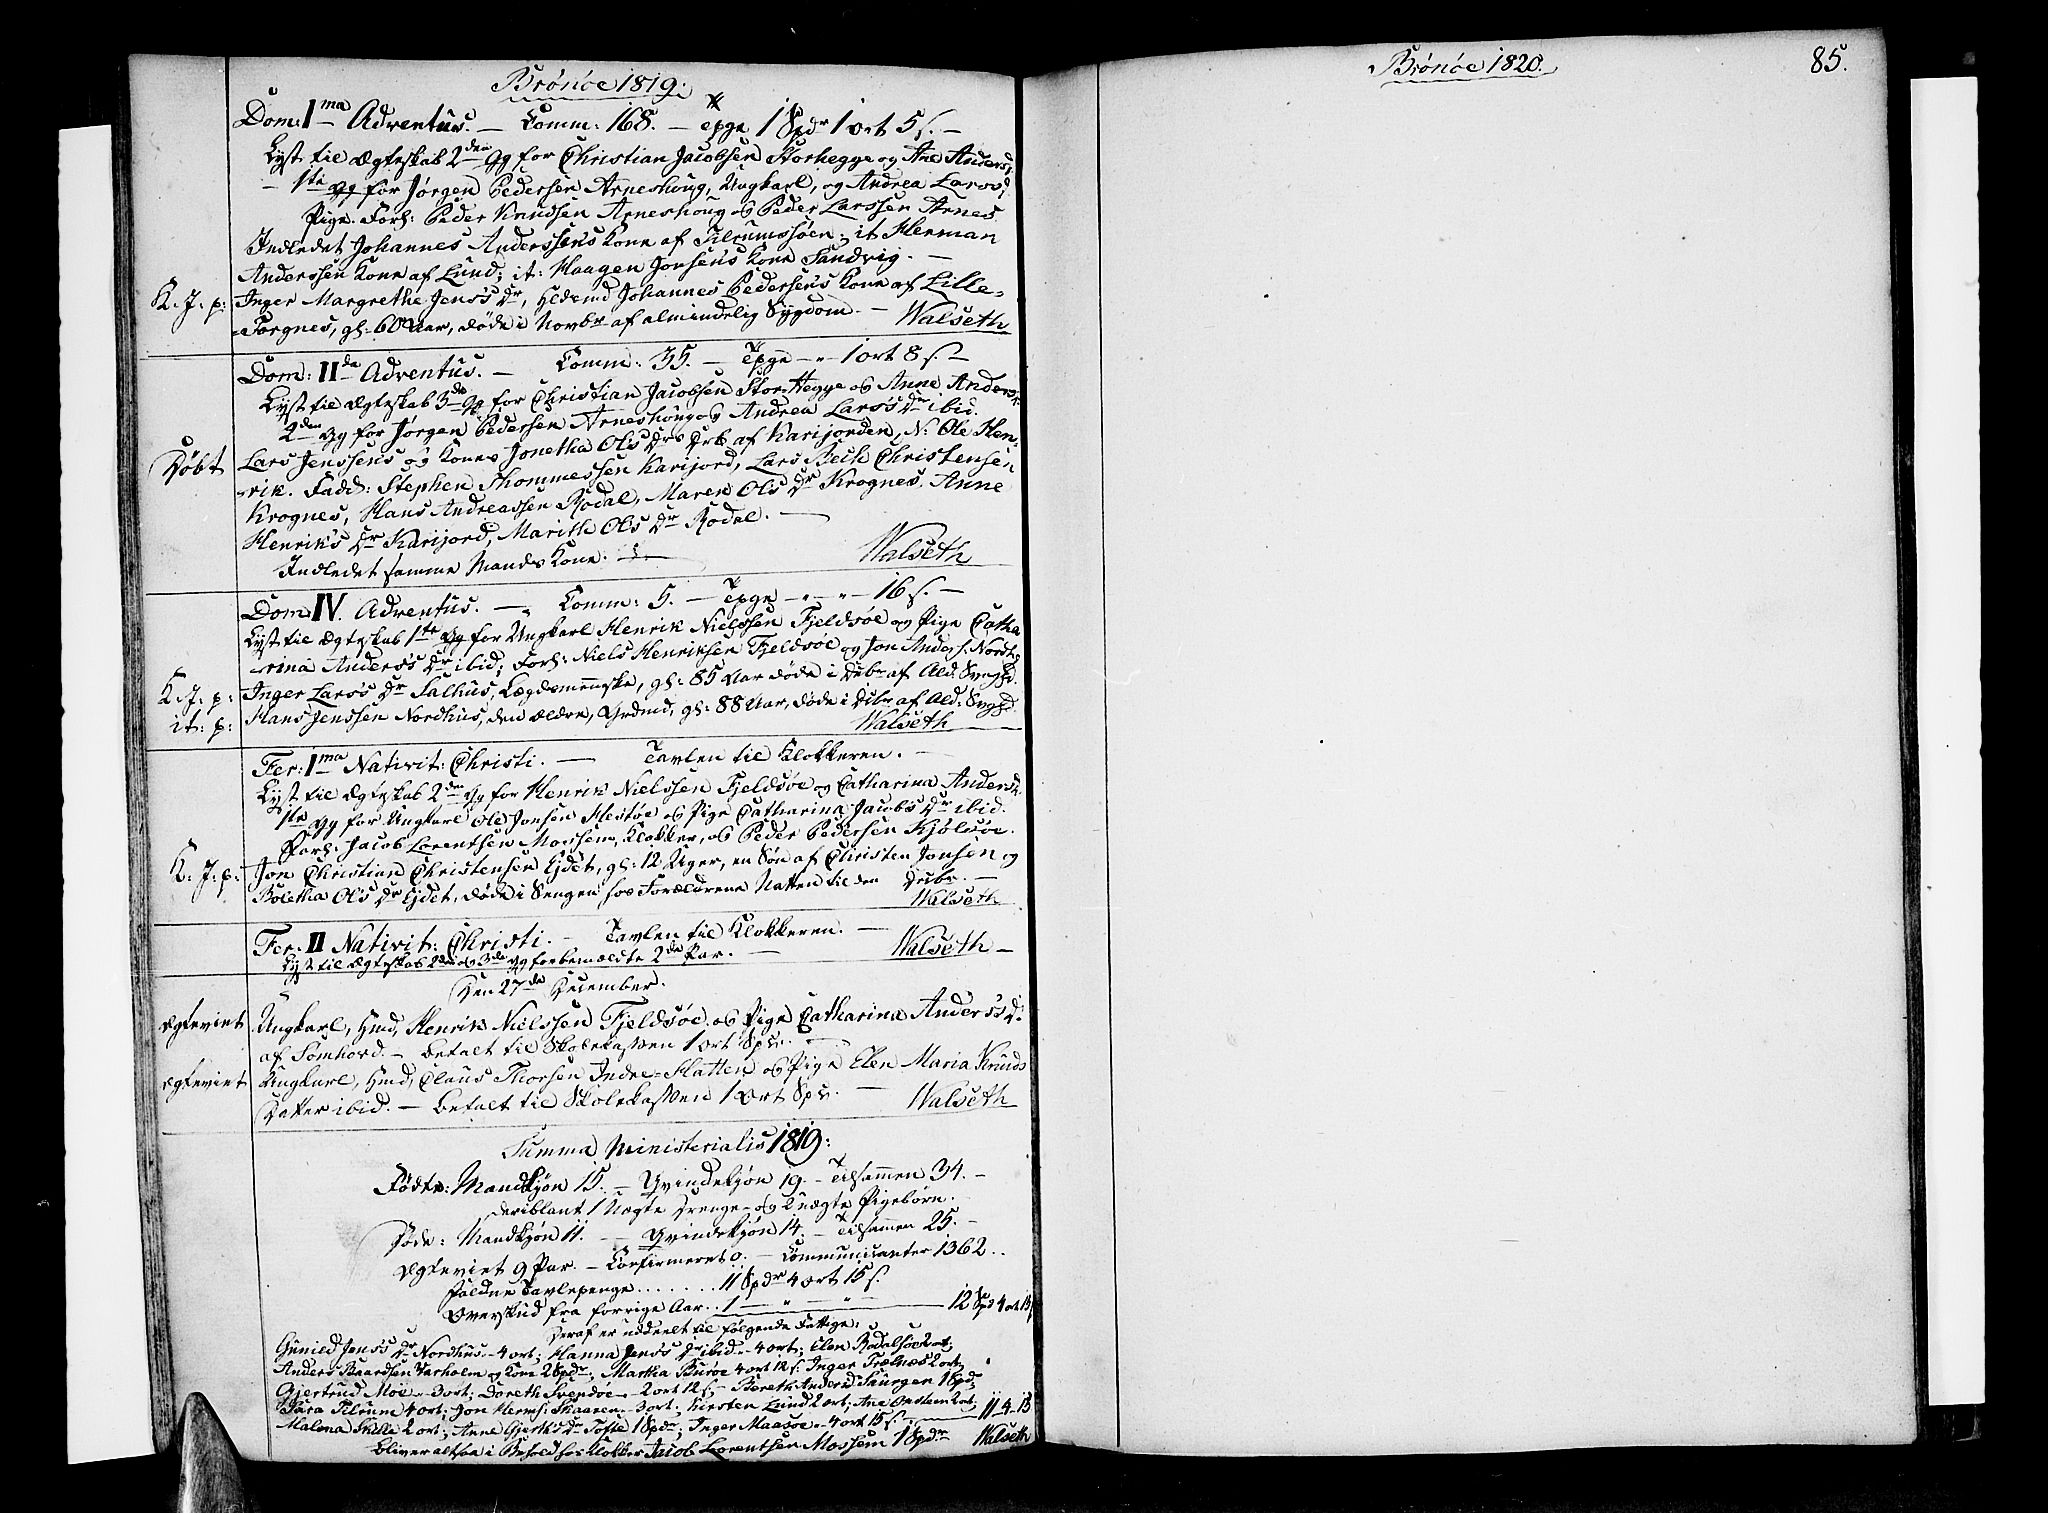 Brönöe 1819.
Dom: I ma Adventus. — Comm: 168. — Tpge 1 Spdr 1 ort 5 s. —
Lyst til Ægteskab 2den Gg for Christian Jacobsen Storhegge og Ane Anders
— 1ste Gg for Jørgen Pedersen Arneshoug, Ungkarl, og Andrea Lars's
Pige. Forl: Peder Knudsen Arneshoug og Peder Larssen Arnes
Indledet Johannes Anderssens Kone af Tilrumssøen; it Herman
Anderssen Kone af Lund; it: Haagen Jonsens Kone Sandvig. —
K. J. p: Inger Margrethe Jens's Dr, Hdsmd Johannes Pedersens Kone af Lille-
-Torgnes, gl: 60 Aar, døde i Novbr af almindelig Sygdom. — Walseth
Dom: II da Adventus. — Comm: 35. — Tpge — " — 1 ort 8 s. —
Lyst til Ægteskab 3de Gg for Christian Jacobsen Stor-Hegge og Anne Anders
2den Gg for Jørgen Pedersen Arneshoug og Andrea Lars's Dr ibid.
Døbt Lars Jenssens og Kones Jonetha Ols Drs Drb af Karijorden, N: Ole Hen-
-rik. Fadd: Stephen Thommessen Karijord, Lars Bech Christensen
Krognes, Hans Andreassen Rodal, Maren Ols Dr Krognes, Anne
Henriks Dr Karijord, Marith Ols Dr Rodal. —
Indledet samme Mands Kone. — Walseth
Dom IV. Adventus. — Comm: 5. — Tpge — " — " — 16 s. —
Lyst til Ægteskab 1ste Gg for Ungkarl Henrik Nielssen Fjeldsøe og Pige Catha
-rina Anders's Dr ibid; Forl: Niels Henriksen Fjeldsøe og Jon Anders. Nordh
K. J. p: Inger Lars's Dr Salhus, Lægdsmenneske, gl: 85 Aar døde i Debr af Ald. Svaghd.
it: p: Hans Jenssen Nordhus, den ældre, Grdmd, gl: 88 Aar, døde i Debr af Ald: Svaghd
Walseth
Fer: I ma Nativit: Christi. — Tavlen til Klokkeren. —
Lyst til Ægteskab 2den Gg for Henrik Nielssen Fjeldsøe og Catharina Anders
1ste Gg for Ungkarl Ole Jonsen Hestøe og Pige Catharina Jacobs Dr ibid.
Forl: Jacob Lorentsen Mossem, Klokker, og Peder Pedersen Kjölsøe.
K. J. p: Jon Christian Christensen Ejdet, gl: 12 Uger, en Søn af Christen Jonsen og
Boletha Ols Dr Ejdet, døde i Sengen hos Forældrene Natten til den Decbr. —
Walseth
Fer: II Nativit: Christi. — Tavlen til Klokkeren. —
Lyst til Ægteskab 2den og 3de Gg for bemældte 2de Par. — Walseth —
Den 27de December.
Ægteviet Ungkarl, Hmd, Henrik Nielssen Fjeldsøe og Pige Catharina Anders's D
af Somhord. — Betalt til Skolekassen 1 ort Spec. —
Ægteviet Ungkarl, Hmd, Claus Thorsen Indre-Hatten og Pige Elen Maria Knuds
Datter ibid. — Betalt til Skolekassen 1 Ort Spec. — Walseth
Summa Ministerialis 1819:
Födte: Mandkjön 15. — Qvindekjön 19. — Tilsammen 34. —
deriblant 1 Uægte Drenge- og 2 uægte Pigebörn.
Døde: Mandkjøn 11. — Qvindekjøn 14. — Tilsammen 25. —
Ægteviet 9 Par. — Confirmeret 0. — Communicanter 1362.
Faldne Tavlepenge . . . . . . . 11 Spdr 4 ort 15 s.
Overskud fra forrige Aar . . 1 — " — " — 12 Spd 4 ort 15
Deraf er uddeelt til følgende Fattige:
Gunild Jens's Dr Nordhus — 4 ort; Hanna Jens's Dr ibid — 4 ort; Elen Rodalsøe 2 ort;
Anders Baardsen Varholm og Kone 2 Spdr; Martha Buröe 4 ort 12 s; Inger Trælnæs 2 ort,
Gjertrud Moe — 3 ort; Doreth Svendöe — 2 ort 12 s; — Bereth Andersd Saurgen 1 Spd,
Sara Tilrum 4 ort; Jon Herms: Skaaren — 3 ort; Kirsten Lund 2 ort; Ane 2 ort,
Malena Skille 2 ort; Anne Gjerts Dr Tofte 1 Spdr; Inger Maasøe — 4 ort 15 s. — 11-4-15
Bliver altsaa i Behold hos Klokker Jacob Lorentsen Mossem 1 Spdr Walseth
Brönöe 1820.
85.